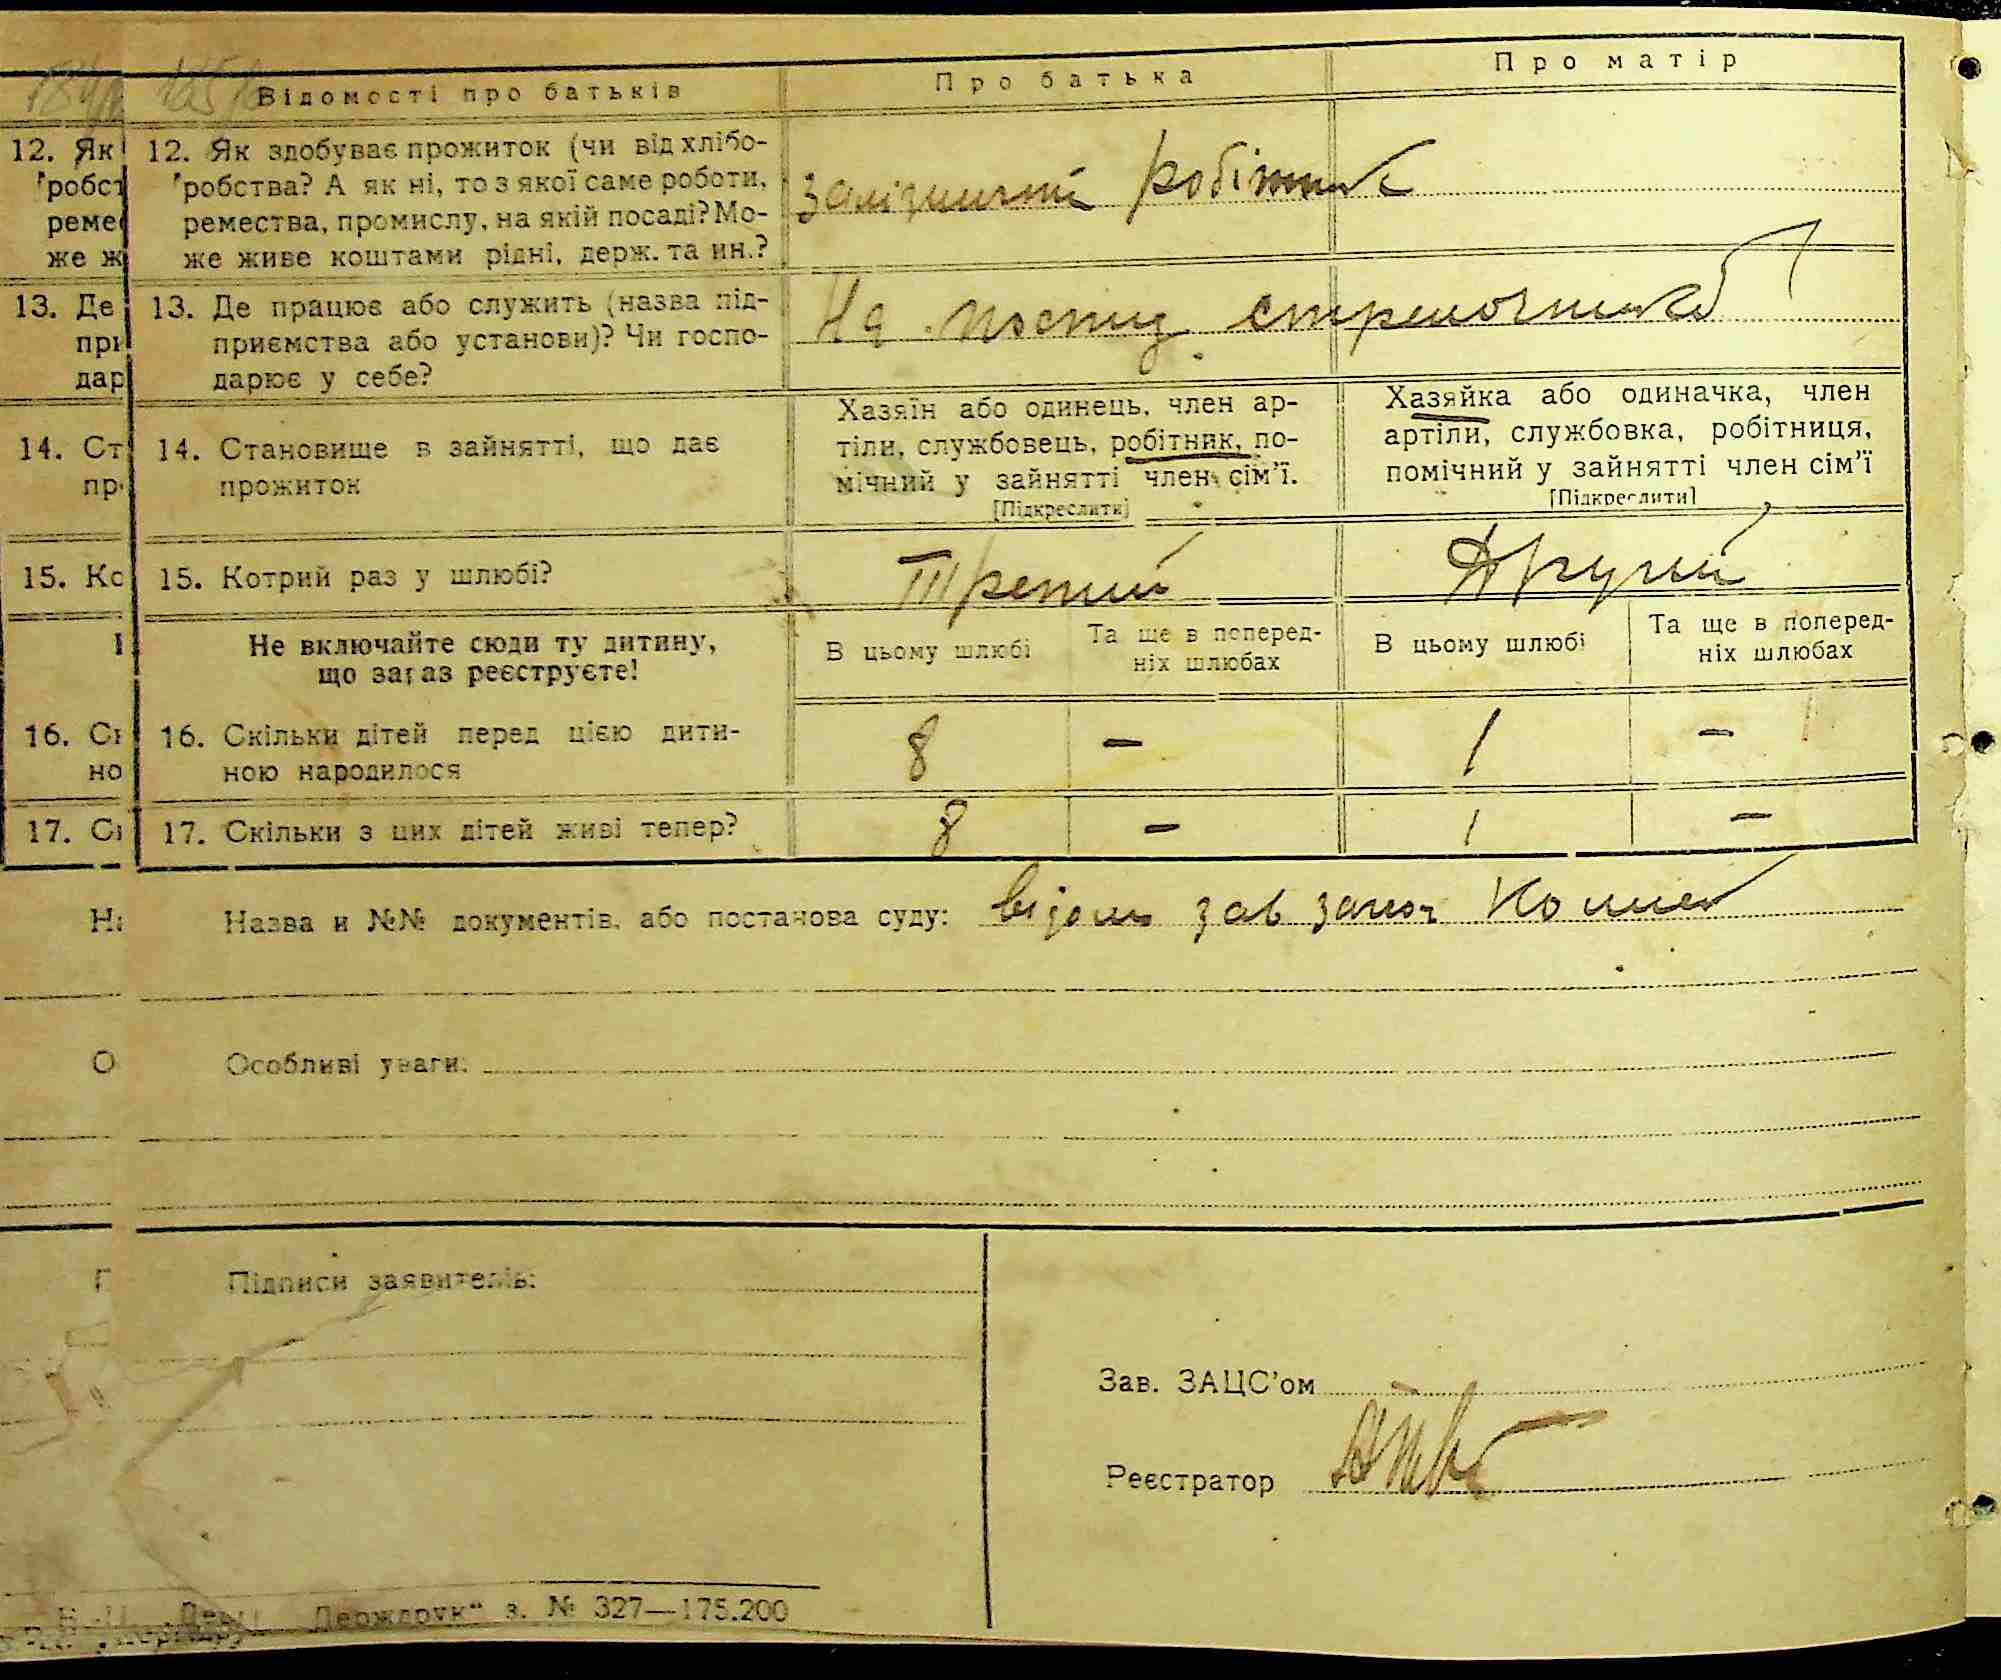 Відомості про батьків Про батька Про матір
12. Як 12. Як здобуває прожиток (чи від хлібо-
робст робства? А як ні, то з якої саме роботи,
ремес ремества, промислу, на якій посаді? Мо-
же ж же живе коштами рідні, держ. та ин.?
залізничний робітник
13. Де 13. Де працює або служить (назва під-
при приємства або установи)? Чи госпо-
дар дарює у себе?
На посту стрелочника
14. Ст 14. Становище в зайнятті, що дає
пр прожиток
Хазяїн або одинець, член ар-
тіли, службовець, робітник, по-
мічний у зайнятті член сім'ї.
[Підкреслити]
Хазяйка або одиначка, член
артіли, службовка, робітниця,
помічний у зайнятті член сім'ї
[Підкреслити]
15. Ко 15. Котрий раз у шлюбі? Третий Другий
Не включайте сюди ту дитину,
що зараз реєструєте!
В цьому шлюбі Та ще в поперед-
ніх шлюбах
В цьому шлюбі Та ще в поперед-
ніх шлюбах
16. Ск 16. Скільки дітей перед цією дити-
но ною народилося
8 – 1 –
17. Ск 17. Скільки з цих дітей живі тепер? 8 – 1 –
На Назва и №№ документів, або постанова суду: зав
О Особливі уваги:
П Підписи заявителів:
Зав. ЗАЦС'ом
Реєстратор
„Держдрук" з. № 327—175.200